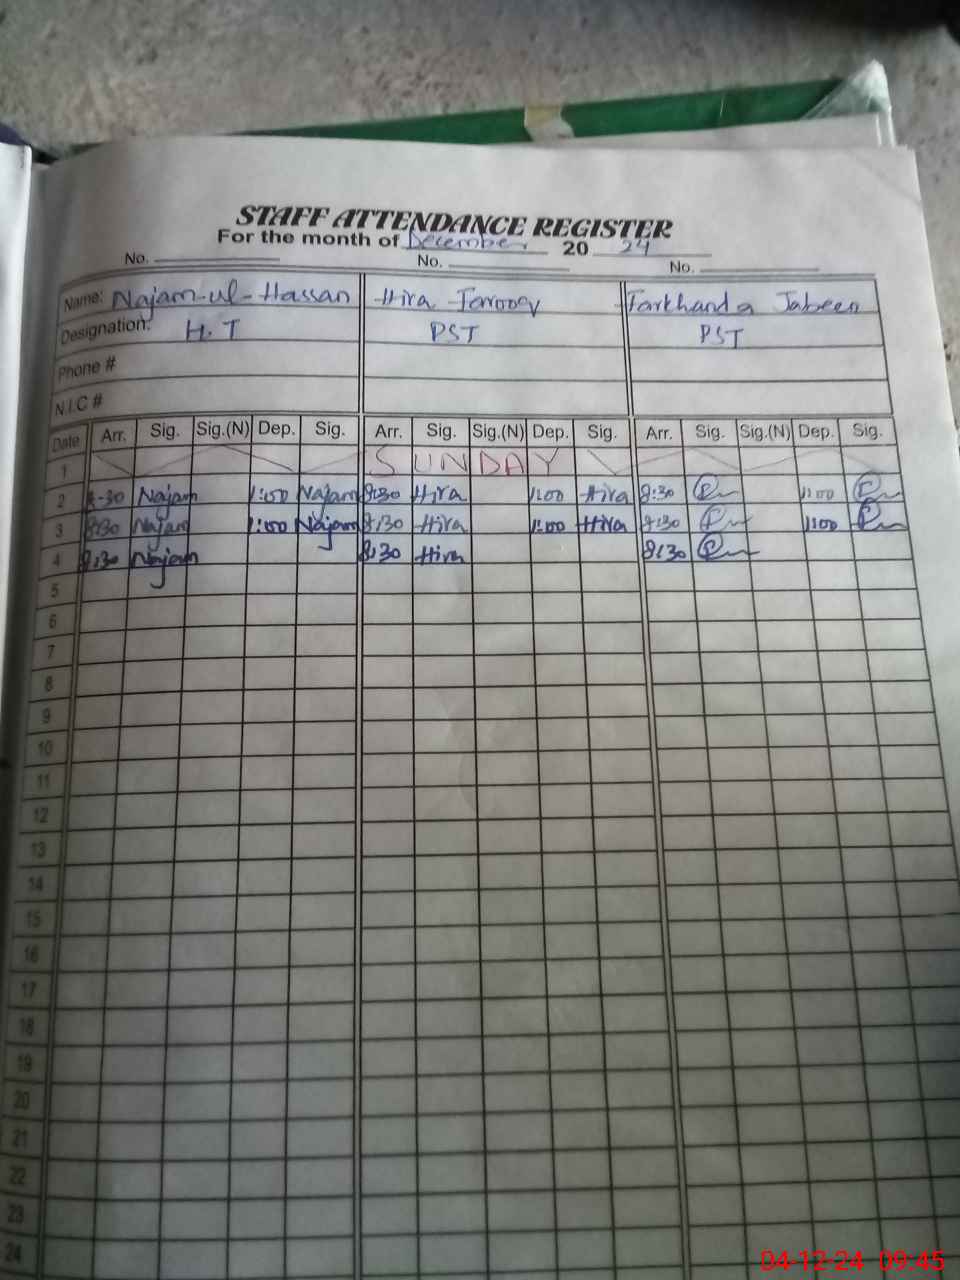 STAFF ATTENDANCE REGISTER
For the month of December 20 24
No. No. No.
Name: Najam-ul-Hassan Hira Farooq Farkhanda Jabeen
Designation: H.T PST PST
Phone #
N.I.C #
Date Arr. Sig. Sig.(N) Dep. Sig. Arr. Sig. Sig.(N) Dep. Sig. Arr. Sig. Sig.(N) Dep. Sig.
1 SUNDAY
2 8-30 Najam 1:00 Najam 8:30 Hira 1:00 Hira 8:30 1:00
3 8:30 Najam 1:00 Najam 8:30 Hira 1:00 Hira 8:30 1:00
4 8:30 Najam 8:30 Hira 8:30
5
6
7
8
9
10
11
12
13
14
15
16
17
18
19
20
21
22
23
24
04-12-24 09:45